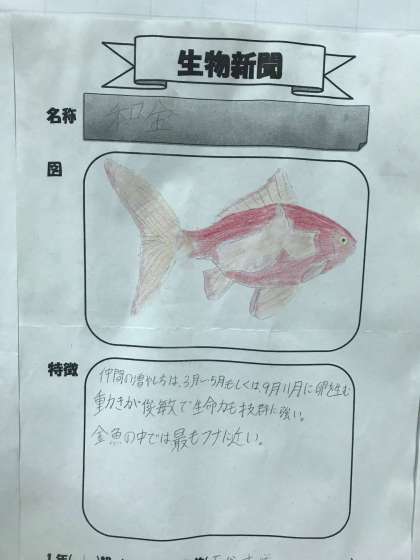 生物新聞
名称
和金
図
特徴
仲間の増やし方は、3月〜5月もしくは、9月11月に卵を産む
動きが俊敏で生命力も抜群に強い。
金魚の中では最もフナに近い。
1年(